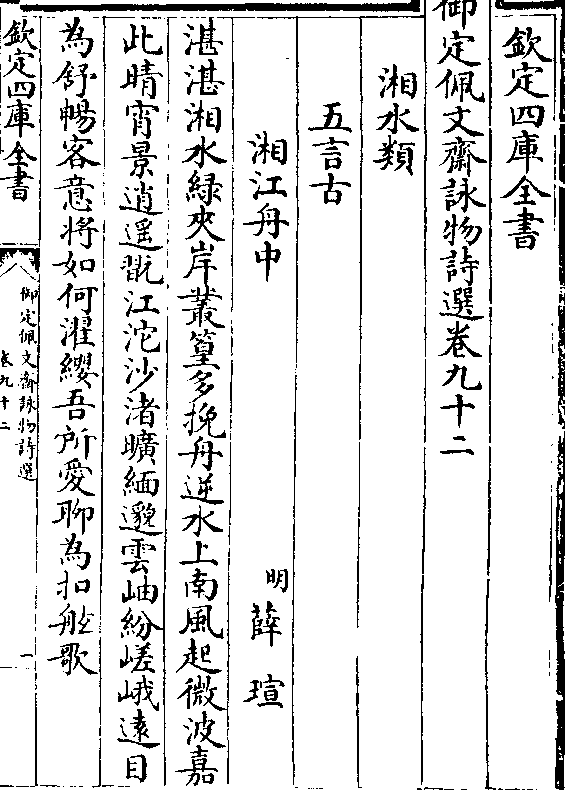 欽定四庫全書
御定佩文齋詠物詩選卷九十二
湘水類
五言古
湘江舟中
明薛瑄
湛湛湘水綠夾岸叢篁多挽舟逆水上南風起微波嘉
此晴宵景逍遥翫江沱沙渚曠緬邈雲岫紛嵯峨遠目
為舒暢客意將如何濯纓吾所愛聊為扣舷歌
欽定四庫全書
御定佩文齋詠物詩選
卷九十二
一